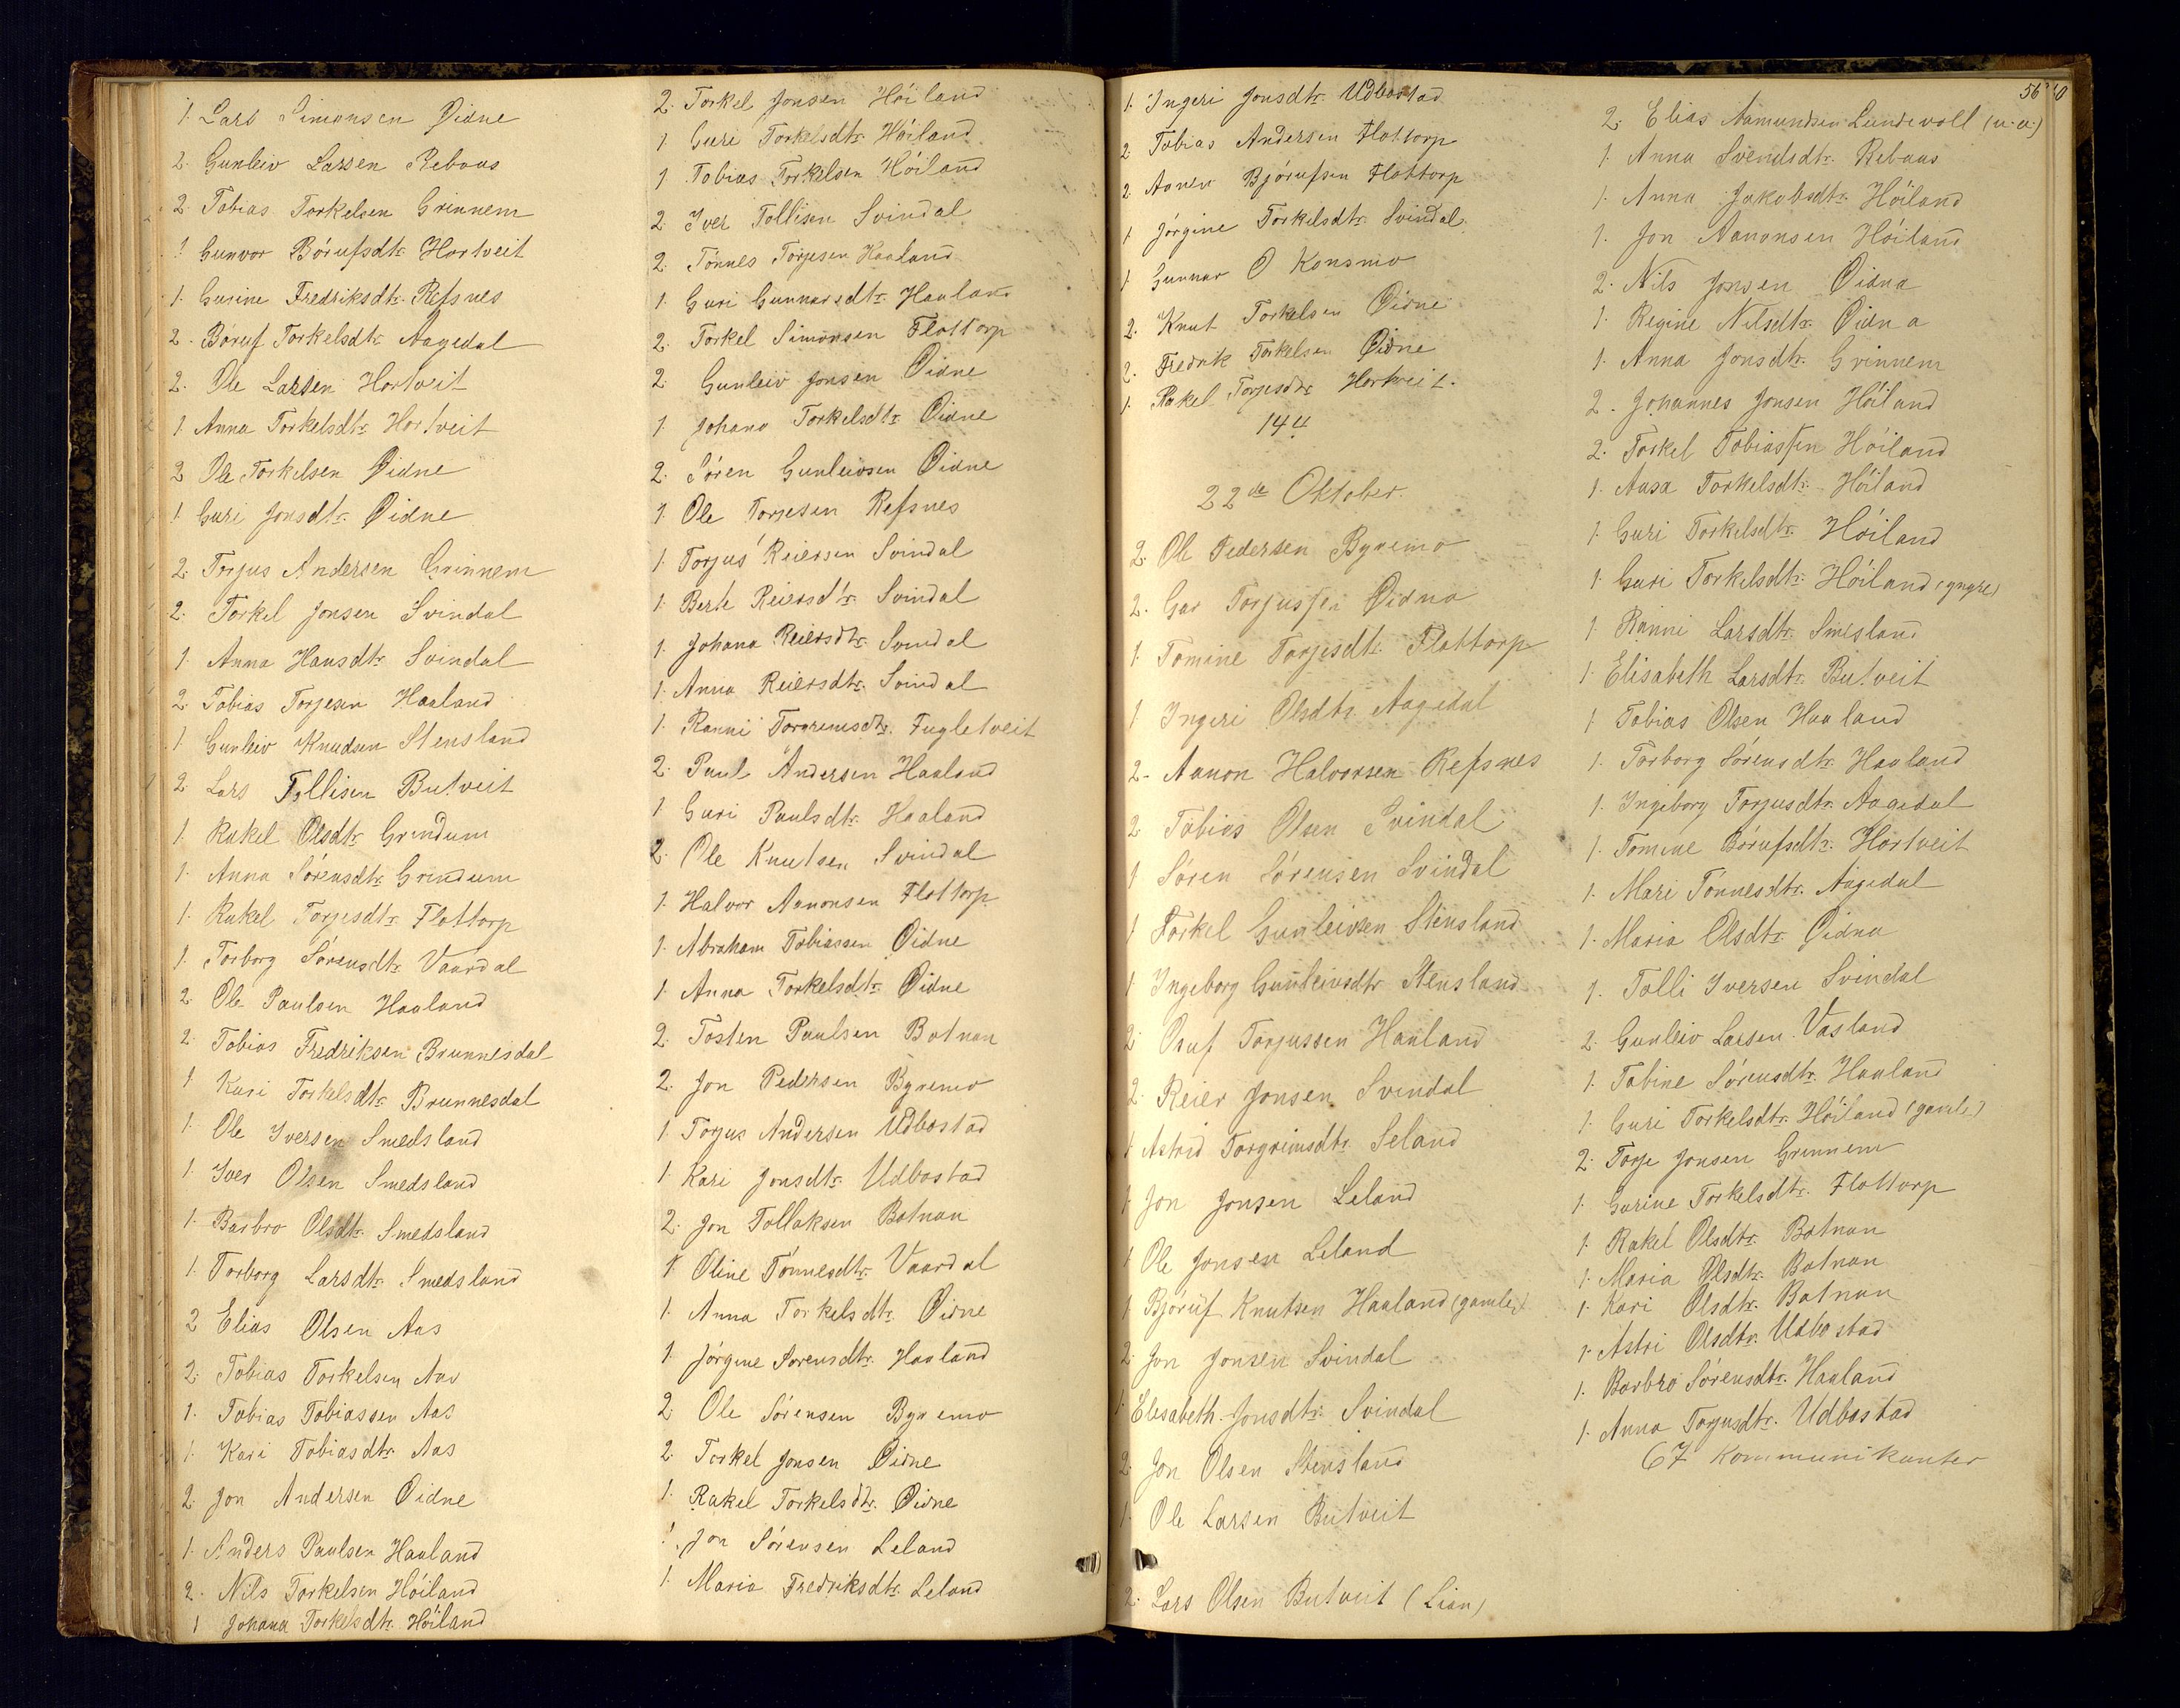 1. Lars Simonsen Øidne
2. Gunleiv Larsen Rebaas
2. Tobias Torkelsen Grinnem
1 Gunvor Bórufsdtr. Hortveit
1. Gurine Fredriksdtr. Refsnes
2. Bóruf Torkelsdtr. Aagedal
2. Ole Larsen Hortveit
1. Anna Torkelsdtr. Hortveit
2 Ole Torkelsen Øidne
1. Guri Jonsdtr. Øidne
2. Torjus Andersen Grinnem
2. Torkel Jonsen Svindal
1. Anna Hansdtr. Svindal
2. Tobias Torjesen Haaland
1. Gunleiv Knudsen Stensland
2. Lars Tollisen Butveit
1 Rakel Olsdtr. Grindum
1. Anna Sórensdtr. Grindum
1. Rakel Torjesdtr. Flottorp
1. Torborg Sórensdtr. Vaardal
2. Ole Paulsen Haaland
2. Tobias Fredriksen Brunnesdal
1 Kari Torkelsdtr. Brunnesdal
1. Ole Iversen Smedsland
1. Iver Olsen Smedsland
1. Barbro Olsdtr. Smedsland
1. Torborg Larsdtr. Smedsland
2 Elias Olsen Aas
2. Tobias Torkelsen Aas
1. Tobias Tobiassen Aas
1. Kari Tobiasdtr. Aas
2. Jon Andersen Oidne
1. Anders Paulsen Haaland
2. Nils Torkelsen Hóiland
1 Johana Torkelsdtr. Hóiland
2. Torkel Jonsen Hóiland
1 Guri Torkelsdtr. Hóiland
1 Tobias Torkelsen Hóiland
2. Iver Tollisen Svindal
2. Tónnes Torjesen Haaland
1. Guri Gunnarsdtr. Haaland
2. Torkel Simonsen Flottorp
2. Gunleiv Jonsen Øidne
1. Johana Torkelsdtr. Øidne
2. Sóren Gunleivsen Øidne
1. Ole Torjesen Refsnes
1. Torjus Reiersen Svindal
1. Berte Reiersdtr. Svindal
1. Johana Reiersdtr. Svindal
1. Anna Reiersdtr. Svindal
1. Ranni Torgrimsdtr. Fugletveit
2. Paul Andersen Haaland
1. Guri Paulsdtr. Haaland
2. Ole Knutsen Svindal
1. Halvor Aanonsen Flottorp
1. Abraham Tobiassen Øidne
1. Anna Torkelsdtr. Øidne
2. Tosten Paulsen Botnan
2. Jon Pedersen Bynemo
1. Torjus Andersen Udbostad
1. Kari Jonsdtr. Udbostad
2. Jon Tollaksen Botnan
1. Oline Tónnesdtr. Vaardal
1. Anna Torkelsdtr. Øidne
1. Jórgine Sórensdtr. Haaland
2 Ole Sórensen Bynemo
2. Torkel Jonsen Øidne
1. Rakel Torkelsdtr. Øidne
1. Jon Sórensen Leland
1. Maria Fredriksdtr. Leland
1. Ingeri Jonsdtr. Udbostad
2. Tobias Andersen Flottorp
2. Aanen Bjórufsen Flottorp
1 Jórgine Torkelsdtr. Svindal
1. Gunnar O Konsmo
2. Knut Torkelsen Øidne
2. Fredrik Torkelsen Øidne
1. Rakel Torjesdtr. Hortveit.
144
22de Oktober.
2. Ole Pedersen Bynemo
2. Gar Torjussen Øidna
1. Tomine Torjesdtr. Flottorp
1 Ingeri Olsdtr. Aagedal
2- Aanon Halvorsen Refsnes
2 Tobias Olsen Svindal
1 Sóren Sórensen Svindal
1 Torkel Gunleivsen Stensland
1 Ingeborg Gunleivsdtr. Stensland
2 Oruf Torjussen Haaland
2. Reier Jonsen Svindal
1 Astrid Torgrimsdtr. Seland
1 Jon Jonsen Leland
1 Ole Jonsen Leland
1 Bjóruf Knutsen Haaland (gamle)
2. Jon Jonsen Svindal
1. Elisabeth Jonsdtr. Svindal
2. Jon Olsen Stensland
1. Ole Larsen Butveit
2. Lars Olsen Butveit (Lian)
56
2. Elias Aamundsen Lundevoll (u.a.)
1. Anna Svendsdtr. Rebaas
1. Anna Jakobsdtr. Hóiland
1. Jon Aanonsen Hóiland
2. Nils Jonsen Øidna
1. Regine Nilsdtr. Øidna
1. Anna Jonsdtr. Grinnem
2. Johannes Jonsen Hóiland
2. Torkel Tobiassen Hóiland
1. Aasa Torkelsdtr. Hóiland
1. Guri Torkelsdtr. Hóiland
1. Guri Torkelsdtr. Hóiland (yngre)
1 Ranni Larsdtr. Smesland
1. Elisabeth Larsdtr. Butveit
1 Tobias Olsen Haaland
1. Torborg Sórensdtr. Haaland
1. Ingeborg Torjusdtr. Aagedal
1. Tomine Bórufsdtr. Hortveit
1. Mari Tónnesdtr. Aagedal
1. Maria Olsdtr. Øidna
1. Tolli Iversen Svindal
2. Gunleiv Larsen Vasland
1. Tobine Sórensdtr. Haaland
1. Guri Torkelsdtr. Hóiland (gamle)
2. Torje Jonsen Grinnem
1. Gurine Torkelsdtr. Flottorp
1. Rakel Olsdtr. Botnan
1. Maria Olsdtr. Botnan
1. Kari Olsdtr. Botnan
1. Astri Olsdtr. Udbostad
1. Barbro Sórensdtr. Haaland
1. Anna Torjusdtr. Udbostad
67 Kommunikanter